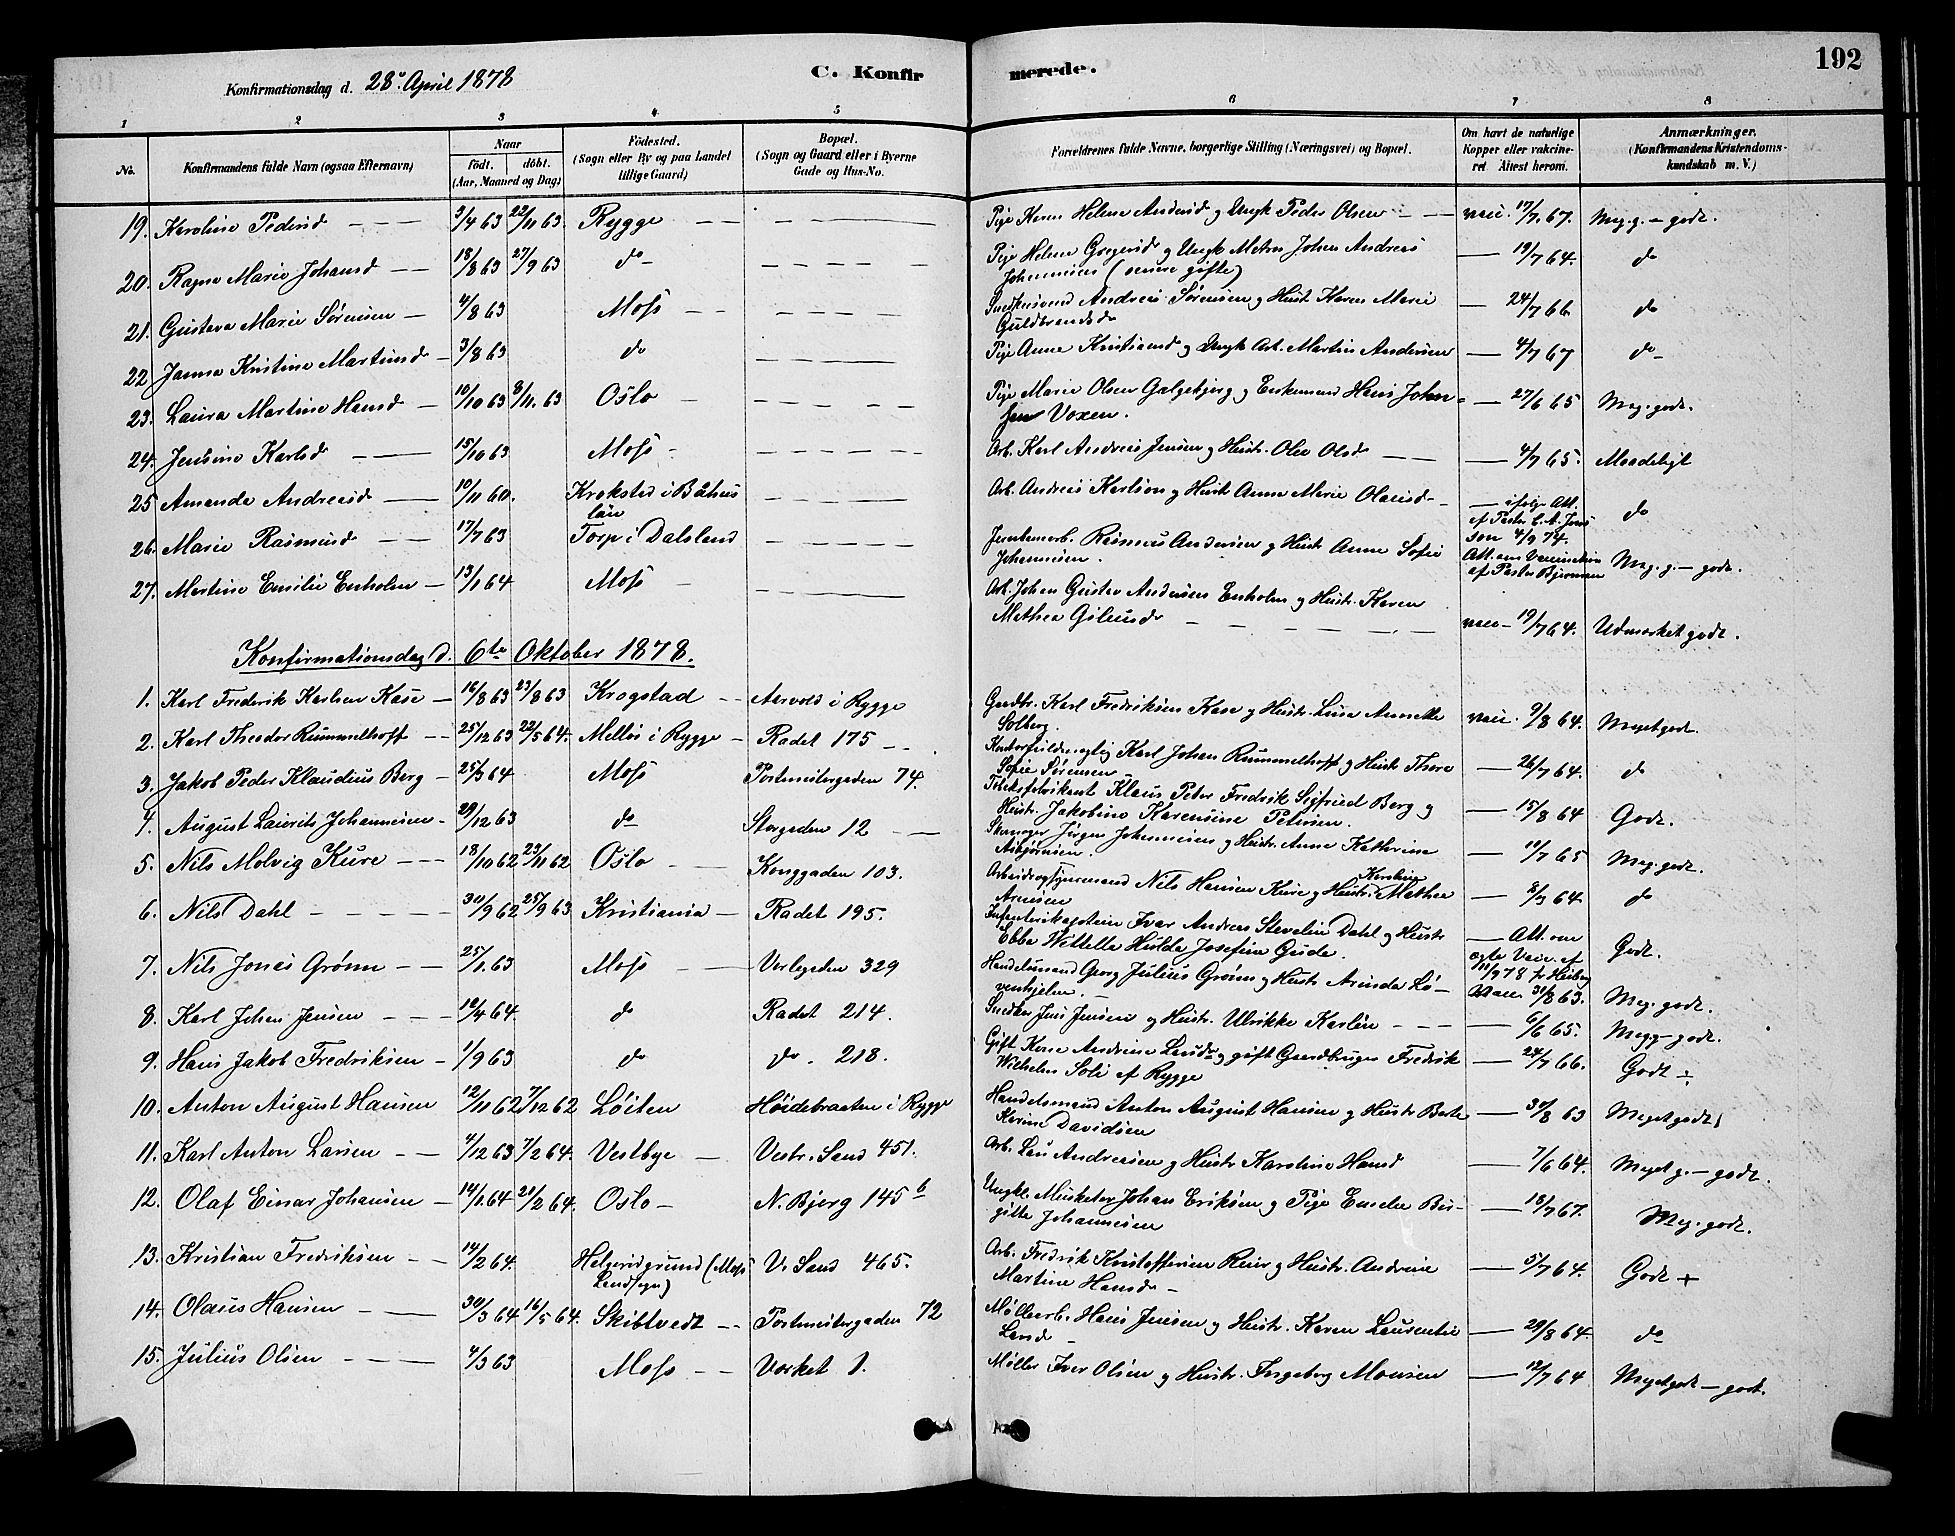 192
Konfirmationsdag d. 28de April 1878
C. Konfirmerede.
1 2 3 4 5 6 7 8
No. Konfirmandens fulde Navn (ogsaa Efternavn)
Naar født. døbt. (Aar, Maaned og Dag)
Födested. (Sogn eller By og paa Landet tillige Gaard)
Bopæl. (Sogn og Gaard eller i Byerne Gade og Hus-No.
Forældrenes fulde Navne, borgerlige Stilling (Næringsvei) og Bopæl.
Om havt de naturlige Kopper eller vakcineret Attest herom.
Anmærkninger. (Konfirmandens Kristendomskundskab m. V.)
19. Karoline Pedersd — 3/4 63 22/11 63 Rygge — Pige Karen Helene Andersd og Ungk Peder Olsen — vacc. 17/7 67. Meg. g. — godt.
20. Ragna Marie Johansd — 18/8 63 27/9 63 do — Pige Helene Gregersd og Ungk Matros Johan Andreas Johannesen (senere gifte) — 19/7 64. do
21. Gustava Marie Sørensen — 4/8 63 Moss — Snedkersvend Andreas Sørensen og Hust. Karen Marie Guldbrandsdr — 24/7 66 do
22 Janna Kristine Martinsd — 3/8 63 do — Pige Anne Kristiansd og Ungk Arb. Martin Andersen — 4/7 67 do
23. Laura Martine Hansd — 10/10 63 8/11. 63 Oslo — Pige Marie Olsen Galgebjerg og Enkemand Hans Johnsen Voxen. — 27/6 65 Meg. godt.
24. Jensine Karlsd — 15/10 63 Moss — Arb. Karl Andreas Jensen og Hustr. Olea Olsd — 4/7 65. Maadeligt
25 Amanda Andreasd — 10/11 60. Krokstad i Båhus län — Arb. Andreas Karlson og Hustr Anna Maria Olausd — ifølge Att. af Pastor C. A. Jonsson 4/9 74. do
26. Marie Rasmusd — 17/7 63 Torp i Dalsland — Rasmus Andersen og Hustr Anne Sofie Johannesen. Att. om Vaccination af Pastor Bjerman Meg. g. — godt.
27. Martine Emilie Enholm — 13/1 64 Moss — Arb. Johan Gustav Andersen Enholm og Hustr. Karen Mathea — vacc — 19/7 64. Udmærket godt.
Konfirmationsdag d. 6te Oktober 1878.
1. Karl Fredrik Karlsen Kase — 16/8 63 23/8 63 Krogstad — Aarvold i Rygge Gardbr. Karl Fredriksen Kase og Hustr. Lina Annette Solberg. vacc. 9/8 64. Meget godt.
2. Karl Theodor Rummelhoff — 25/12 63 22/5 64. Melløs i Rygge — Radet 175 — Karl Johan Rummelhoff og Hustr Thora Sofie Sørensen — 26/7 64. do
3. Jakob Peder Klaudius Berg — 25/3 64 Moss Postmestergaden 74. Tobaksfabrikant Klaus Peter Fredrik Sigfried Berg og Hustr. Jakobine Karensine Petersen. — 15/8 64 Godt.
4. August Lauritz Johannesen — 29/12 63 do Storgaden 12 — Jörgen Johannesen og Hustr. Anne Kathrine Asbjørnsen. — 11/7 65 Meg. godt.
5. Nils Molvig Kure — 18/10 62 23/11 62 Oslo — Konggaden 103. Arbeidsopsynsmand Nils Hansen Kure og Hustr. Karoline Mathea Arnesen — 8/9 64. do
6. Nils Dahl — 30/9 62 25/9 63 Kristiania — Radet 195. Infanterikaptein Ivar Andreas Stevelin Dahl og Hustr Ebba Hulda Josefine Gude. — Att. om ægte Vacc. af 11/9 78 Godt.
7. Nils Jonas Grønn — 25/1. 63 Moss — Værlegaden 329 Handelsmand Georg Julius Grønn og Hustr Arinda Løvenhjelm. — Vacc. 31/8 63. Meg. godt.
8. Karl Johan Jensen — 12/4 64. do Radet 214. Snedker Jens Jensen og Hustr. Ulrikke Karlsen — 6/6 65. Meg g — godt.
9. Hans Jakob Fredriksen — 1/9 63 do do. 218. Gift Andrine Larsdr og gift Gaardbruger Fredrik Wilhelm Soli af Rygge — 24/7 66. Godt ÷
10. Anton August Hansen 12/11 62 7/12 62 Löiten Høidebraaten i Rygge Handelsmand Anton August Hansen og Hustr Berte Karine Davidsen — 31/8 63 Meget godt
11. Karl Anton Larsen — 4/12 63 7/2 64. Vestbye — Vestr. Sand 451. Arb. Lars Andreasen og Hustr Karoline Hansd — 7/6 64. Meget g. — godt.
12. Olaf Einar Johansen — 14/1 64 21/2 64. Oslo — N. Bjerg 145 b Ungkl. Musketer Johan Eriksen og Pige Emelie Birgitte Johannesen — 18/7 67. Meg. godt.
13. Kristian Fredriksen — 14/2 64. Helgerødgrund (Moss Landsogn) V. Sand 465. Arb. Fredrik Kristoffersen Reier og Hustr. Andrine Martine Hansdr — 5/7 64. Godt +
14. Olaus Hansen — 30/3 64 16/5 64. Skibtvedt — Postmestergaden 72 Møllearb. Hans Jensen og Hustr. Karen Laurentie Larsdr — 29/8 64. do
15. Julius Olsen — 4/3 63 Moss — Værket 1. Møller Iver Olsen og Hustr. Ingeborg Monsen — 12/7 64 Meget godt — godt.